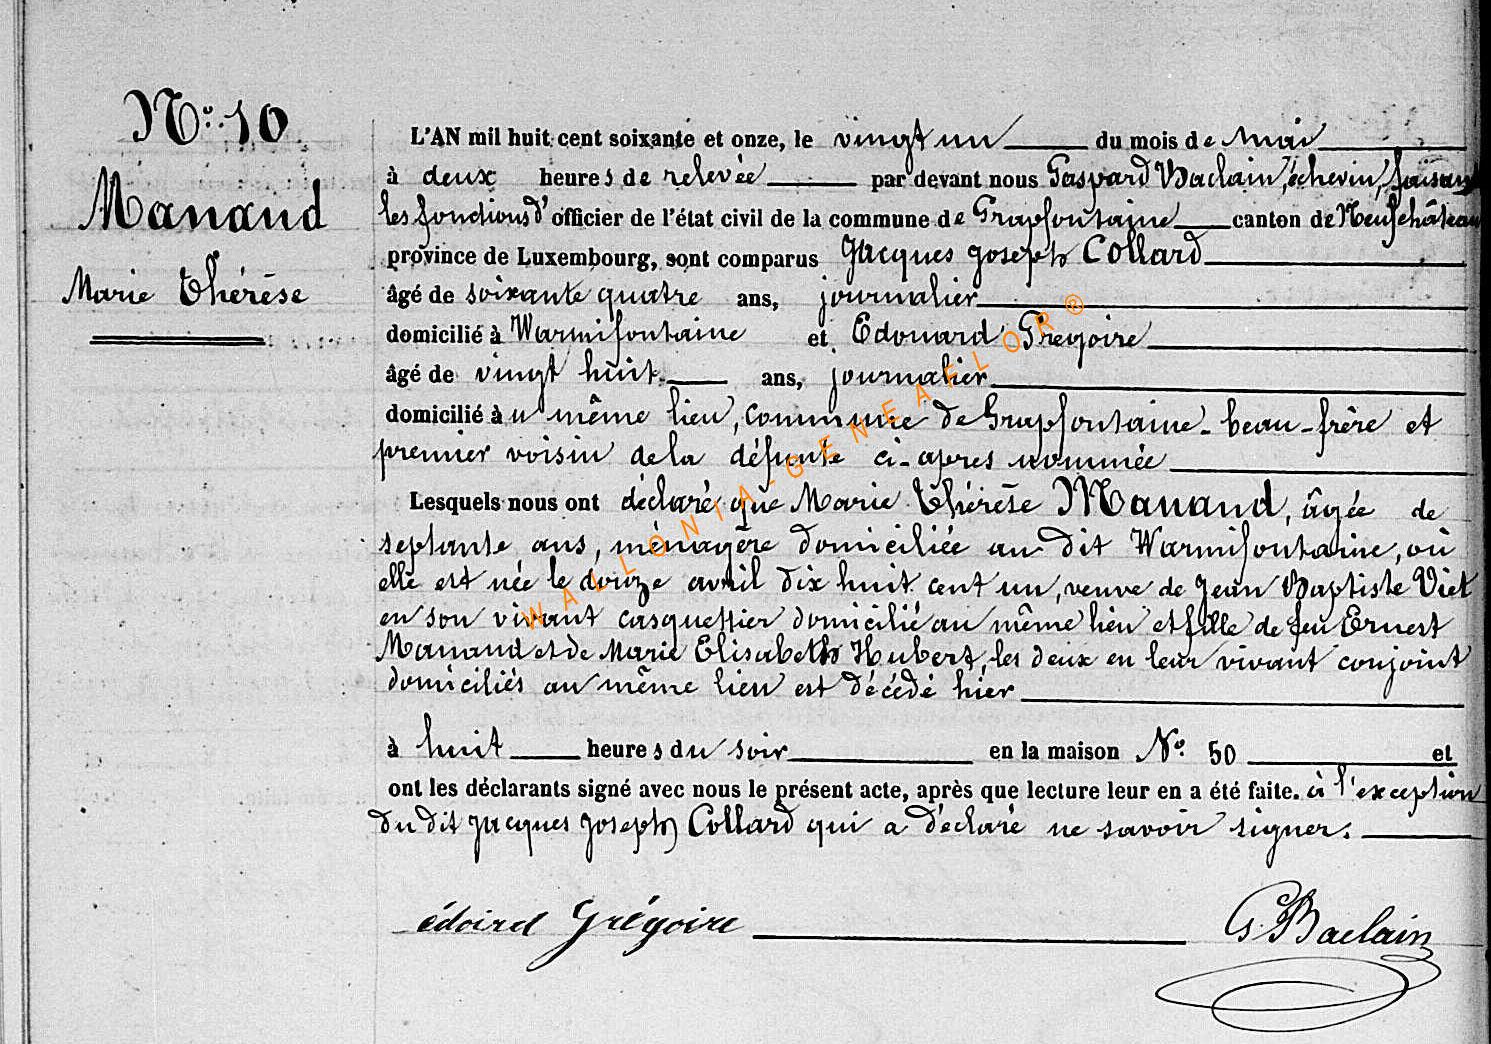 No. 10
Manand
Marie Thérèse
L'AN mil huit cent soixante et onze, le vingt un du mois de mai
à deux heures de relevée par devant nous Gaspard Baclain, échevin, faisant
les fonctions d'officier de l'état civil de la commune de Grapfontaine canton de Neufchâteau
province de Luxembourg, sont comparus Jacques Joseph Collard
âgé de soixante quatre ans, journalier
domicilié à Warmifontaine et Edouard Gregoire
âgé de vingt huit ans, journalier
domicilié au même lieu, commune de Grapfontaine - beau-frère et
premier voisin de la défunte ci-apres nommée
Lesquels nous ont déclaré que Marie Thérèse Manand, âgée de
septante ans, ménagère domiciliée au dit Warmifontaine, où
elle est née le douze avril dix huit cent un, veuve de Jean Baptiste Viet
en son vivant casquettier domicilié au même lieu et fille de feu Ernest
Manand et de Marie Elisabeth Hubert, les deux en leur vivant conjoint
domiciliés au même lieu est décédé hier
à huit heures du soir en la maison No. 50 et
ont les déclarants signé avec nous le présent acte, après que lecture leur en a été faite. à l'exception
du dit Jacques Joseph Collard qui a déclaré ne savoir signer.
édoird Grégoire G. Baclain
WALLONIA-GENEAFLOR®